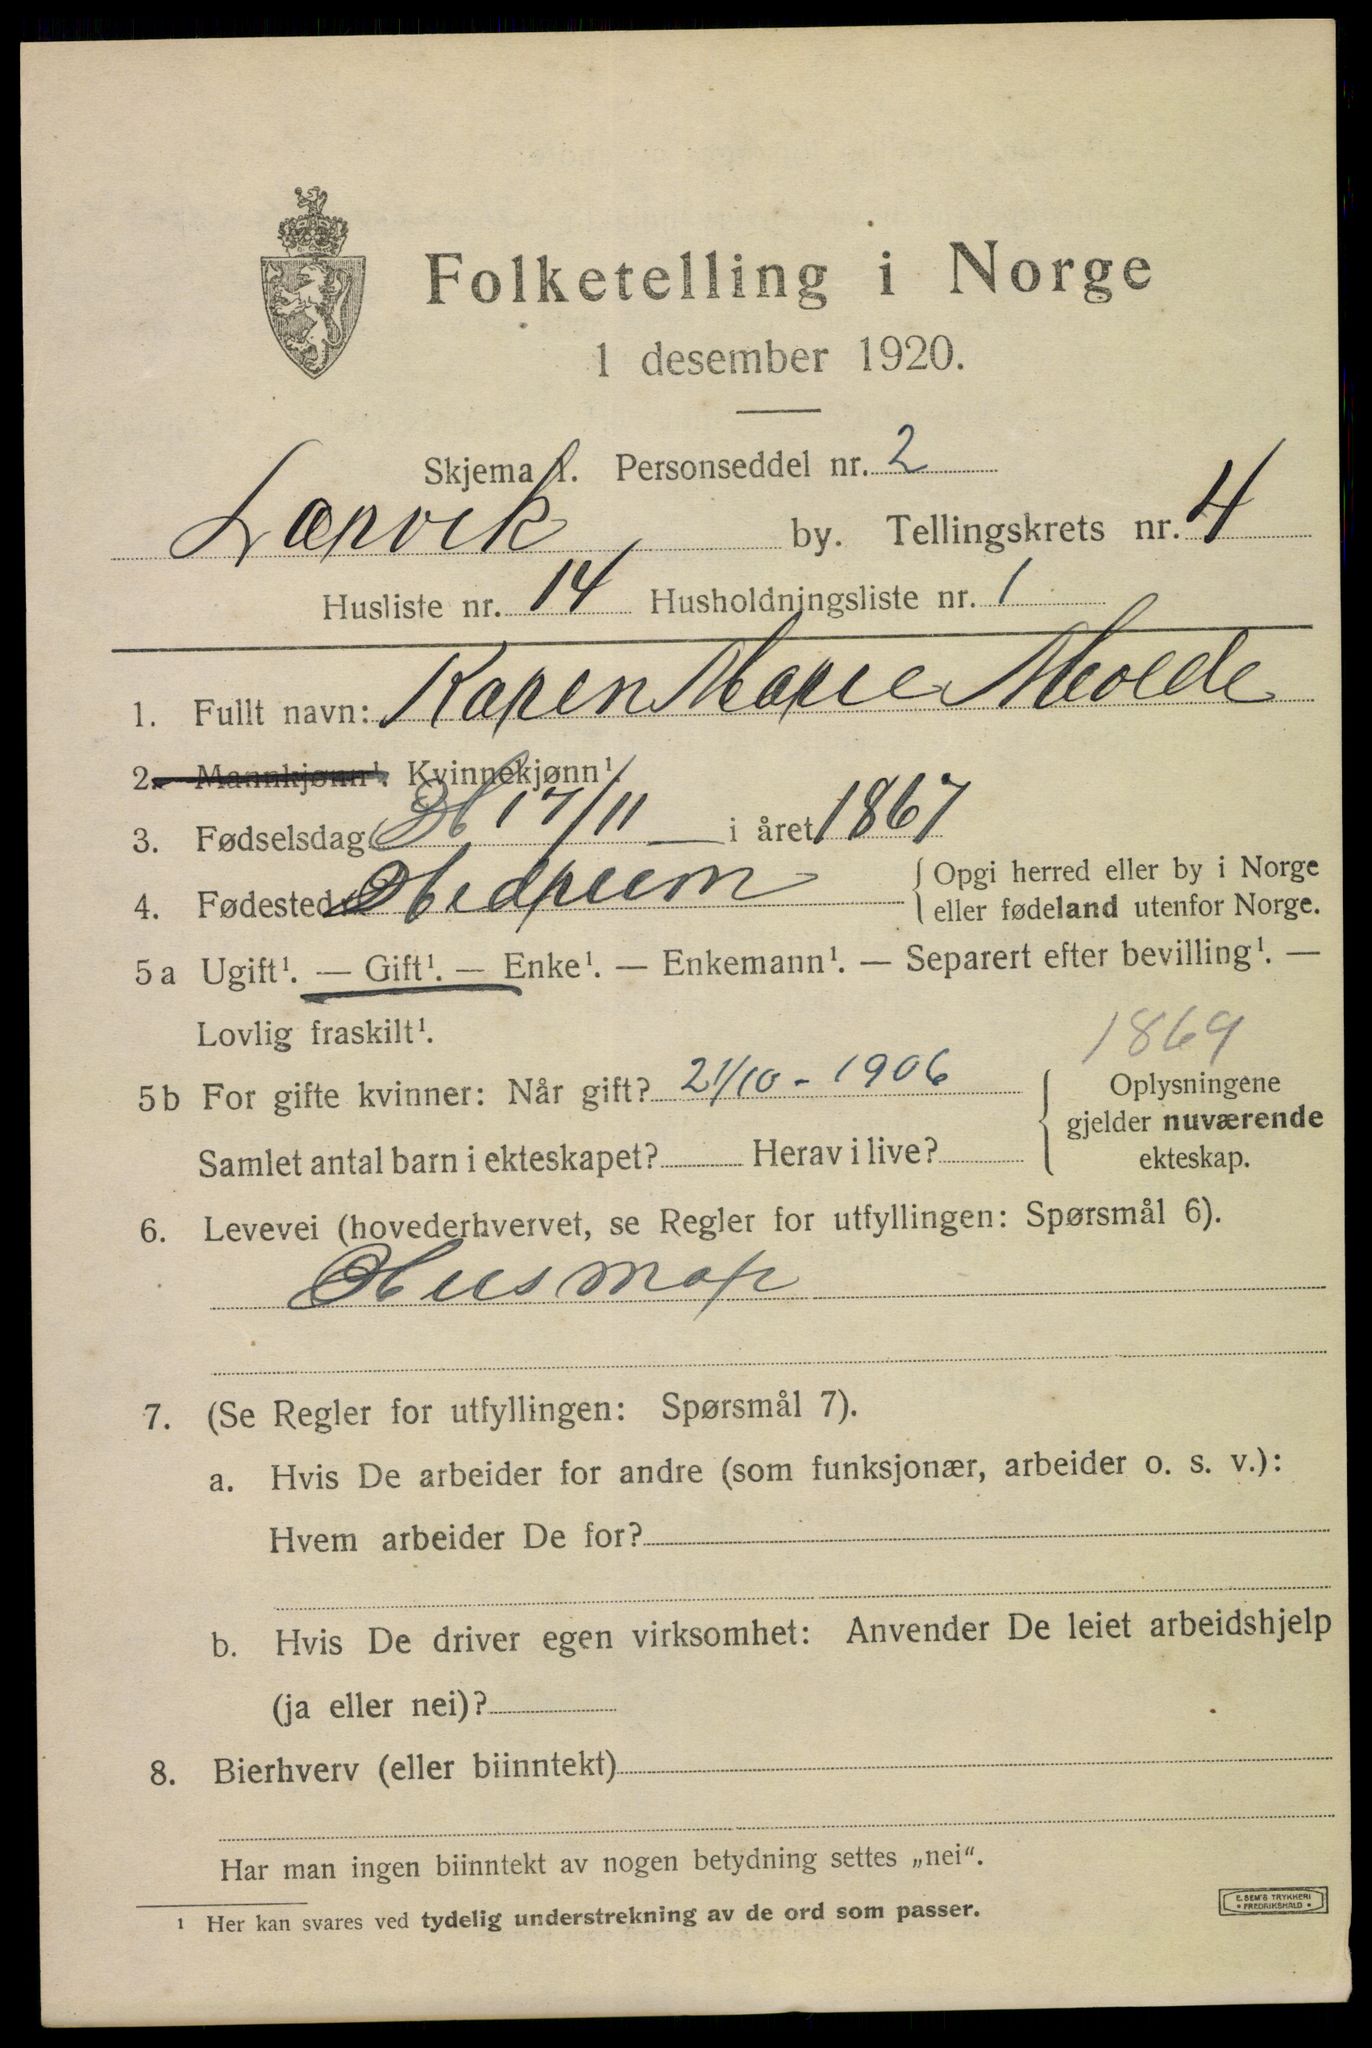 Folketelling i Norge
1 desember 1920.
Skjema 1. Personseddel nr. 2
Larvik by. Tellingskrets nr. 4
Husliste nr. 14 Husholdningsliste nr. 1
1. Fullt navn: Karen Marie Molde
2. Mannkjønn¹. Kvinnekjønn¹.
3. Fødselsdag 17/11 i året 1867
4. Fødested Hedrum { Opgi herred eller by i Norge
eller fødeland utenfor Norge.
5a Ugift¹. — Gift¹. — Enke¹. — Enkemann¹. — Separert efter bevilling¹. —
Lovlig fraskilt¹.
1869
5b For gifte kvinner: Når gift? 21/10 - 1906 { Oplysningene
gjelder nuværende
Samlet antal barn i ekteskapet? Herav i live?
ekteskap.
6. Levevei (hovederhvervet, se Regler for utfyllingen: Spørsmål 6).
Husmor
7. (Se Regler for utfyllingen: Spørsmål 7).
a. Hvis De arbeider for andre (som funksjonær, arbeider o. s. v.):
Hvem arbeider De for?
b. Hvis De driver egen virksomhet: Anvender De leiet arbeidshjelp
(ja eller nei)?
8. Bierhverv (eller biinntekt)
Har man ingen biinntekt av nogen betydning settes „nei“.
¹ Her kan svares ved tydelig understrekning av de ord som passer.
E. SEM'S TRYKKERI
• FREDRIKSHALD •